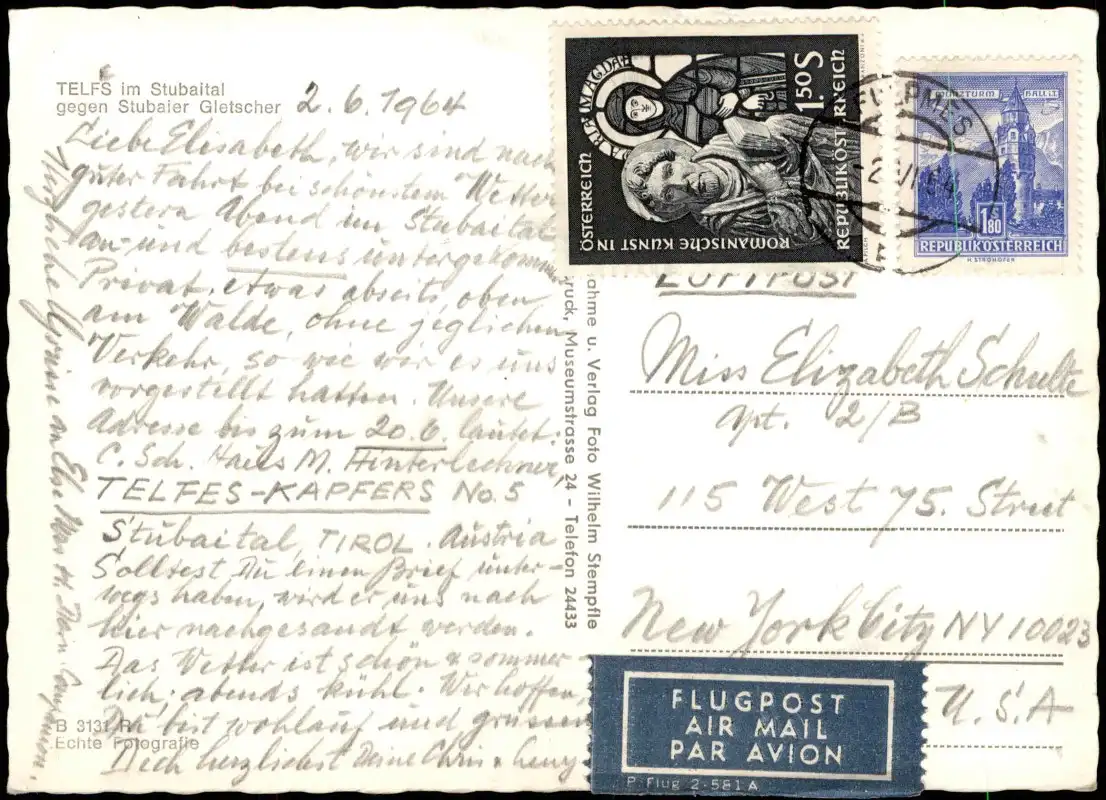 TELFS im Stubaital
gegen Stubaier Gletscher
2.6.1964
Liebe Elisabeth, wir sind nach
guter Fahrt bei schönstem Wetter
gestern Abend im Stubaital
an und bestens untergekommen
Privat, etwas abseits, oben
am Walde, ohne jeglichen
Verkehr, so wie wir es uns
vorgestellt hatten. Unsere
Adresse bis zum 20.6. lautet:
C. Sch. Haus M. Hinterlechner,
TELFES-KAPFERS No. 5
Stubaital, TIROL. Austria
Solltest Du einen Brief unter-
wegs haben, wird er uns nach
hier nachgesandt werden.
Das Wetter ist schön & sommer-
lich, abends kühl. Wir hoffen,
Du bist wohlauf und grüssen
Dich herzlichst Deine Chris &
Herzliche Grüsse an Else
B 3131 R
Echte Fotografie
ahme u. Verlag Foto Wilhelm Stempfle
ruck, Museumstrasse 24 - Telefon 24433
MARIA MAGDAL
1.50 S
ROMANISCHE KUNST IN
ÖSTERREICH
REPUBLIK ÖSTERREICH
MÜNZTURM HALL I.T.
1 S 80
REPUBLIK ÖSTERREICH
H. STROHOFER
FULPMES
-2. VI. 64
LUFTPOST
Miss Elizabeth Schulte
apt. 2/B
115 West 75. Street
New York City NY 10023
U.S.A
FLUGPOST
AIR MAIL
PAR AVION
P-Flug 2-581 A